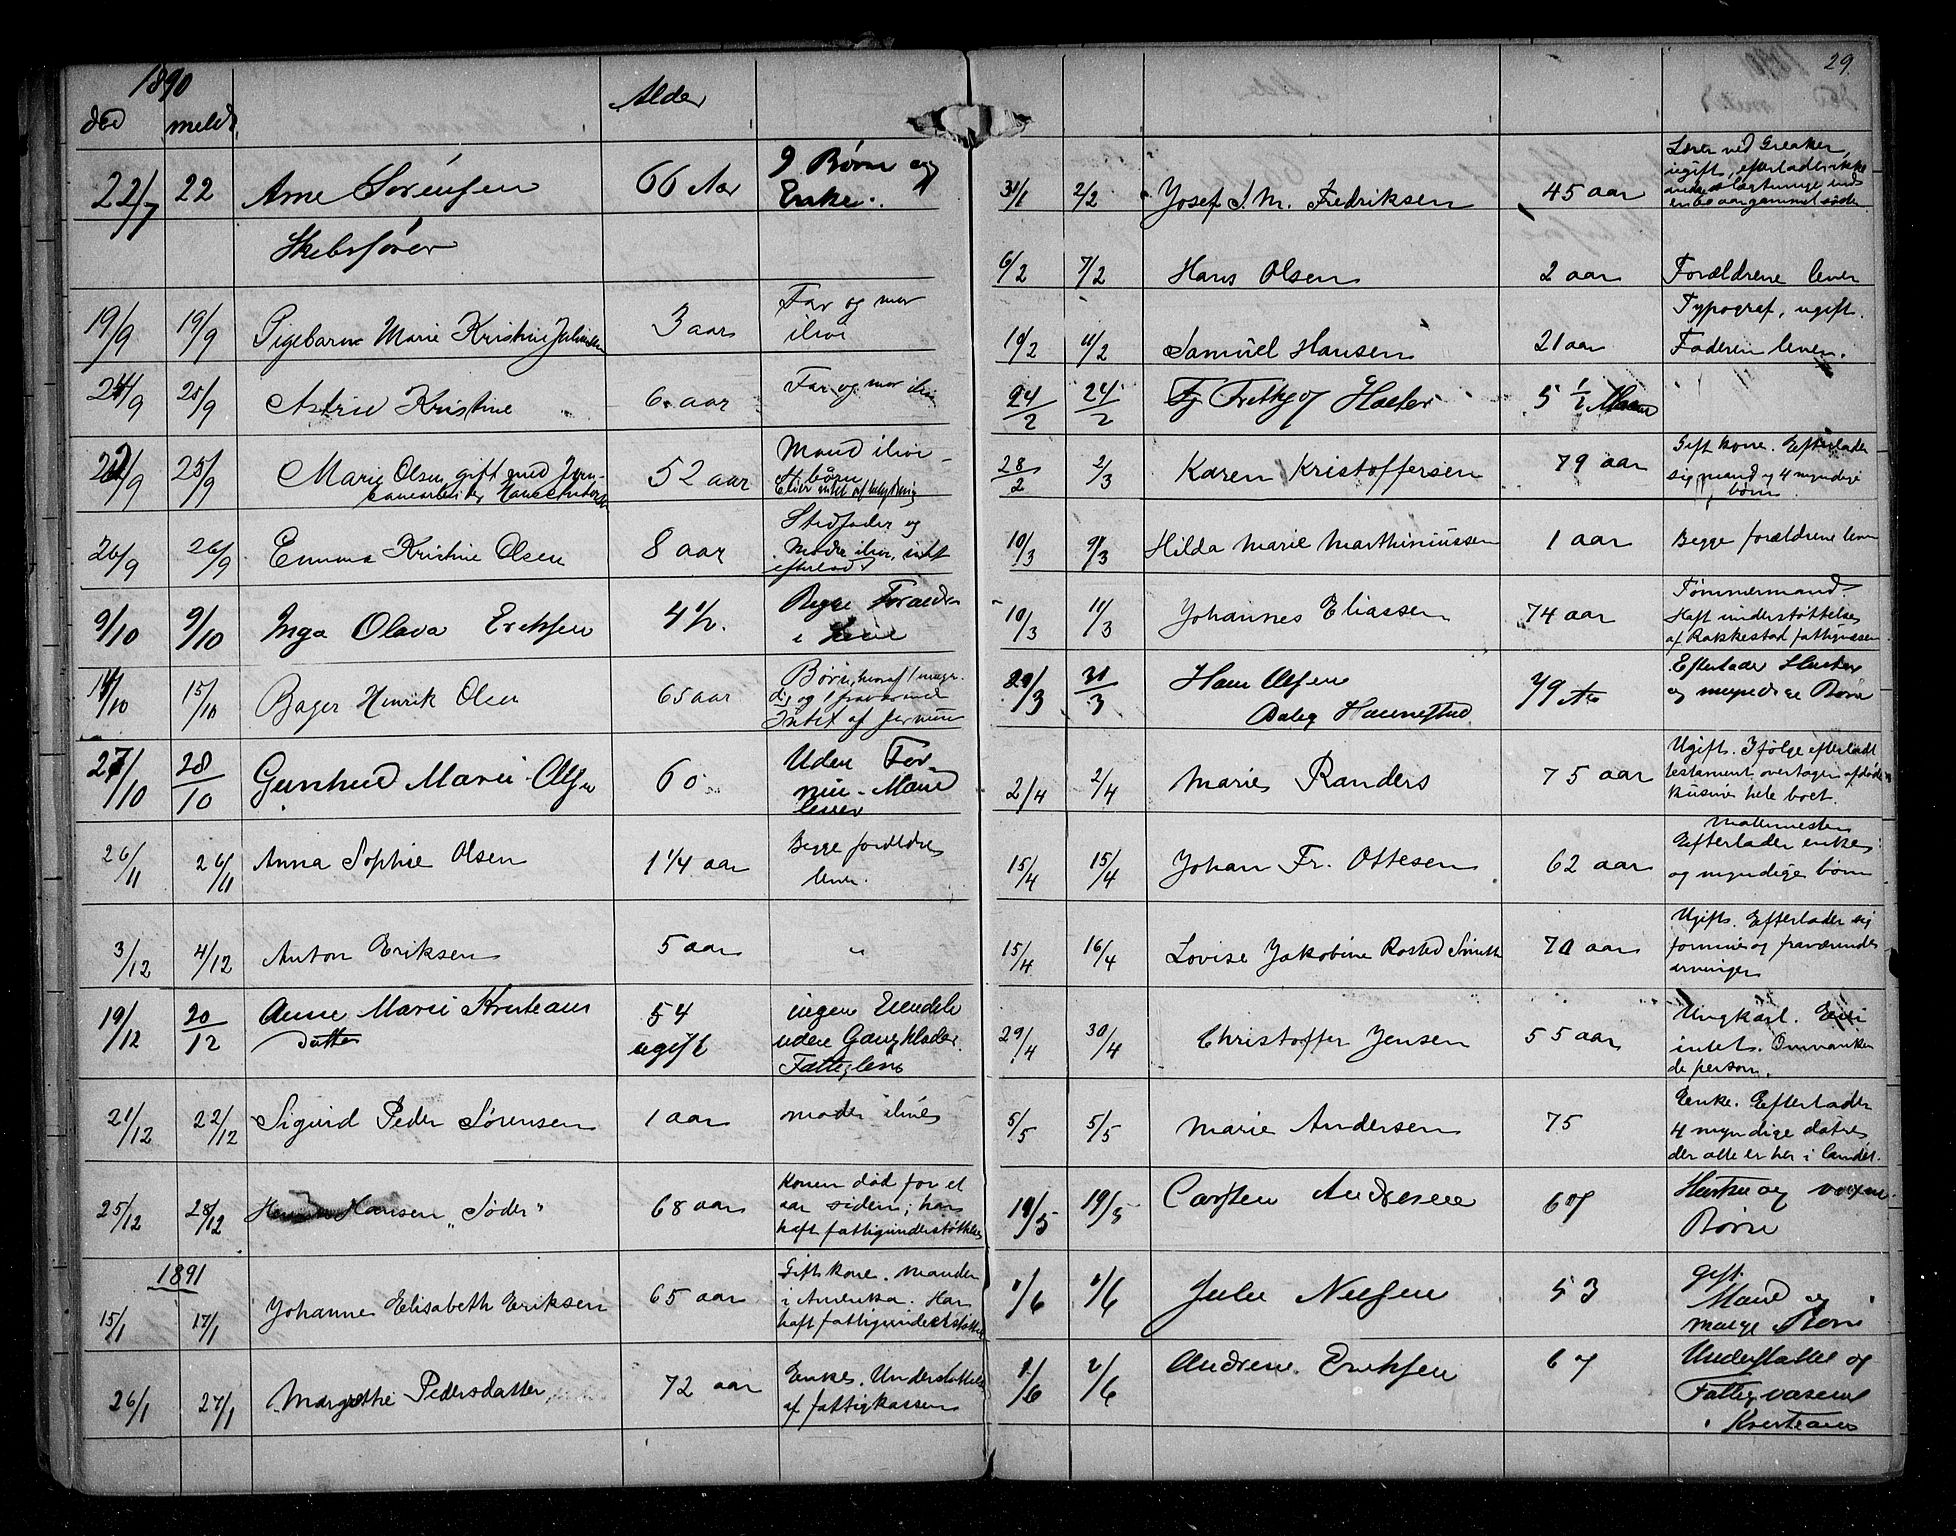 1890
død meldt Alder
22/7 22 Arne Sørensen 66 Aar 9 Børn og
Enke.
Skibsfører
19/9 19/9 Pigebarn Marie Kristine 3 aar Far og mor
ilive
24/9 25/9 Astrid Kristine 6 aar Far og mor ilive
22/9 25/9 Marie Olsen gift med Jern- 52 aar Mand ilive
banearbeider børn
26/9 26/9 Emma Kristine Olsen 8 aar Stedfader og
Moder ilive, intet
efterladt
9/10 9/10 Inga Olava Eriksen 4 1/2 Begge Forældre
i Live
14/10 15/10 Bager Henrik Olsen 65 aar Børn, hvoraf 1 myn-
dig og 1 fraværende
Intet af formue
27/10 28/10 Gunhild Marie Olsen 60 Uden For-
mue - Mand
lever
26/11 26/11 Anna Sophie Olsen 1 1/4 aar Begge forældre
lever.
3/12 4/12 Anton Eriksen 5 aar "
19/12 20/12 Anne Marie Kristians 54 ingen Eiendele
datter ugift uden Gangklæder.
Fattiglem
21/12 22/12 Sigurd Peder Sørensen 1 aar moder ilive
25/12 28/12 Hansen „Söder" 68 aar Konen død for et
aar siden; har
haft fattigunderstøttelse
1891
15/1 17/1 Johanne Elisabeth Eriksen 65 aar Gift kone. Manden
i Amerika. Har
haft fattigunderstøttelse
26/1 27/1 Margrethe Pedersdatter 72 aar Enke. Understøttet
af fattigkassen
29.
31/1 2/2 Josef J. M. Fredriksen 45 aar Lærer ved Greaker,
ugift, efterlader ikke
andre slægtninge end
en 60 aar gammel søster
6/2 7/2 Hans Olsen 2 aar Forældrene lever
Typograf, ugift.
10/2 11/2 Samuel Hansen 21 aar Faderen lever.
24/2 24/2 5 1/2
28/2 2/3 Karen Kristoffersen 79 aar Gift kone. Efterlader
sig mand og 4 myndige
børn
10/3 9/3 Hilda Marie Marthiniussen 1 aar Begge forældrene lever
10/3 11/3 Johannes Eliassen 74 aar Tømmermand.
Haft understøttelse
af Rakkestad fattigvæsen
29/3 31/3 Hans Olsen 79 Aar Efterlader Hustru
og myndige Børn
Hannestad
2/4 2/4 Marie Randers 75 aar Ugift. Ifølge efterladt
testament overtager afdødes
kusine hele boet.
Møllemester
15/4 15/4 Johan Fr. Ottesen 62 aar Efterlader enke
og myndige børn
15/4 16/4 Lovise Jakobine Rosted Smith 70 aar Ugift. Efterlader sig
formue og fraværende
arvinger
29/4 30/4 Christoffer Jensen 55 aar Ungkarl. Eier
intet. Omvanken
de person.
5/5 5/5 Marie Andersen 75 Enke. Efterlader
4 myndige døtre
der alle er her i landet.
19/5 19/5 Carsten Andresen 67 Hustru og voxne
Børn
1/6 1/6 Julie Nielsen 53 gift.
Mand og
mange Børn
1/6 2/6 Andrine Eriksen 67 Understøttet og
Fattigvæsenet
i Kristiania